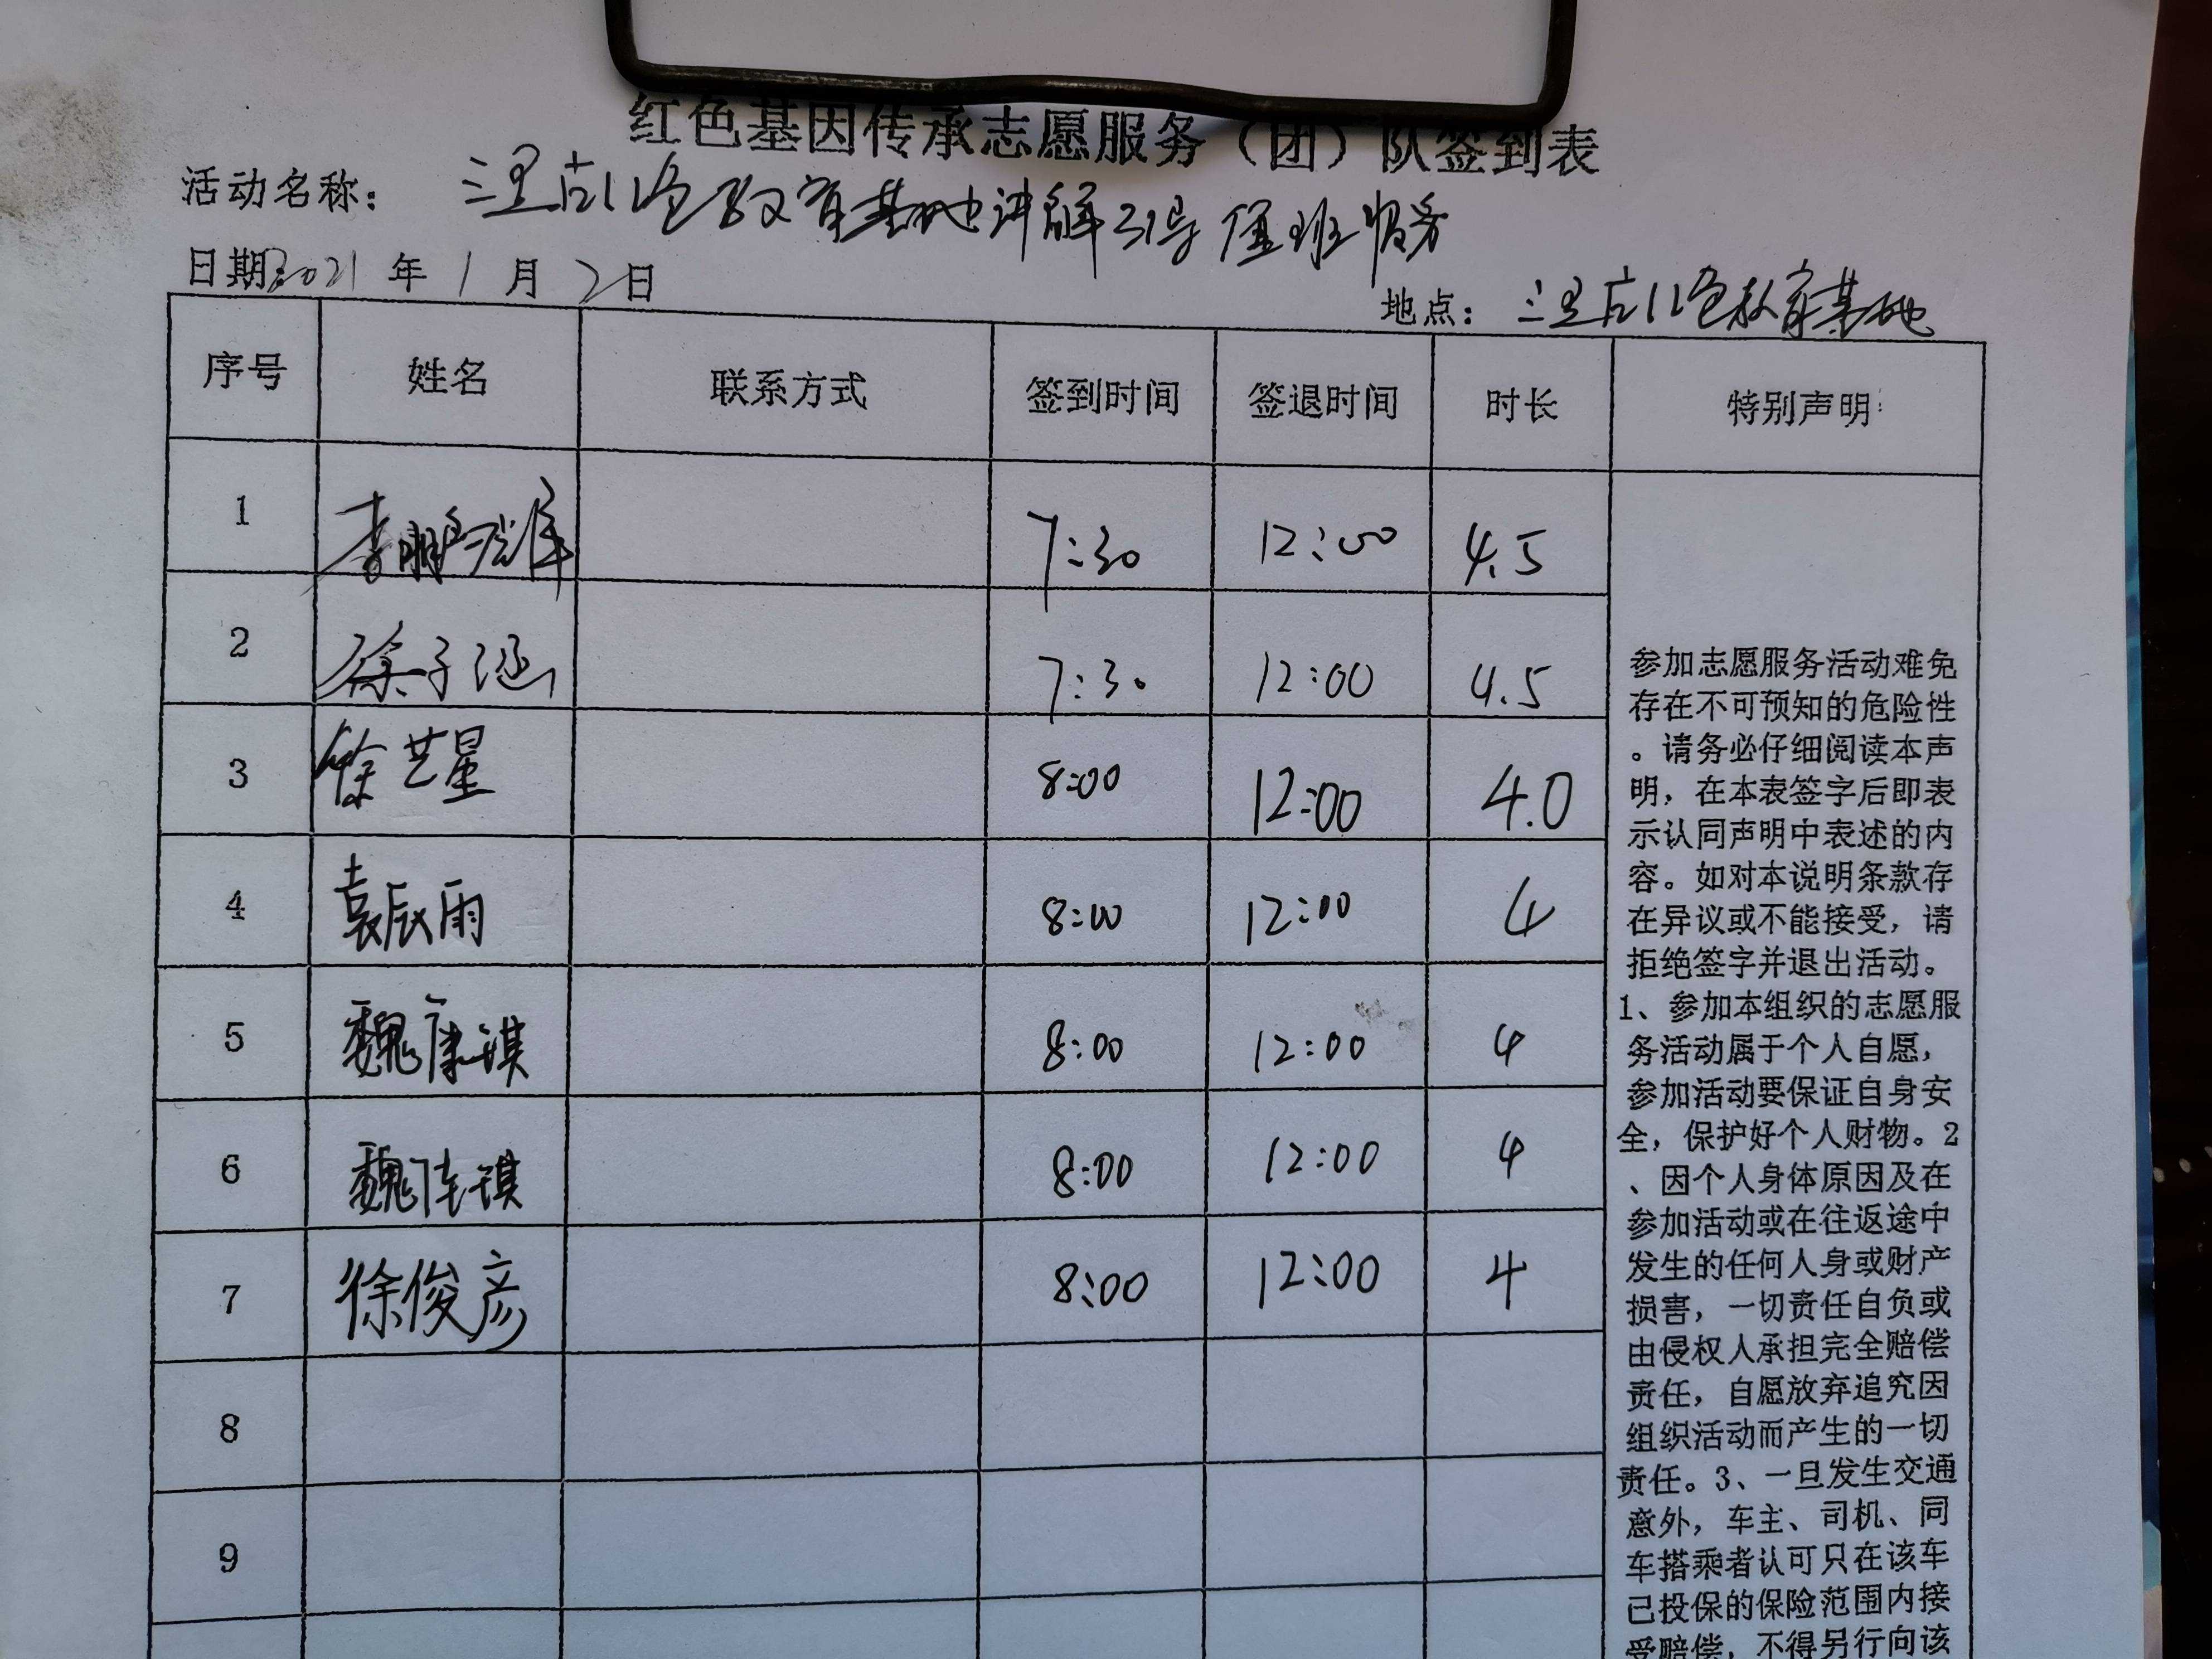 红色基因传承志愿服务（团）队签到表
活动名称： 三里店红色教育基地讲解引导值班服务
日期：2021 年 1 月 2 日
地点： 三里店红色教育基地
序号 姓名 联系方式 签到时间 签退时间 时长 特别声明：
1 李 7:30 12:00 4.5
2 徐子涵 7:30 12:00 4.5
3 徐艺星 8:00 12:00 4.0
4 袁辰雨 8:00 12:00 4
5 魏康祺 8:00 12:00 4
6 魏 祺 8:00 12:00 4
7 徐俊彦 8:00 12:00 4
8
9
参加志愿服务活动难免
存在不可预知的危险性
。请务必仔细阅读本声
明，在本表签字后即表
示认同声明中表述的内
容。如对本说明条款存
在异议或不能接受，请
拒绝签字并退出活动。
1、参加本组织的志愿服
务活动属于个人自愿，
参加活动要保证自身安
全，保护好个人财物。2
、因个人身体原因及在
参加活动或在往返途中
发生的任何人身或财产
损害，一切责任自负或
由侵权人承担完全赔偿
责任，自愿放弃追究因
组织活动而产生的一切
责任。3、一旦发生交通
意外，车主、司机、同
车搭乘者认可只在该车
已投保的保险范围内接
受赔偿，不得另行向该